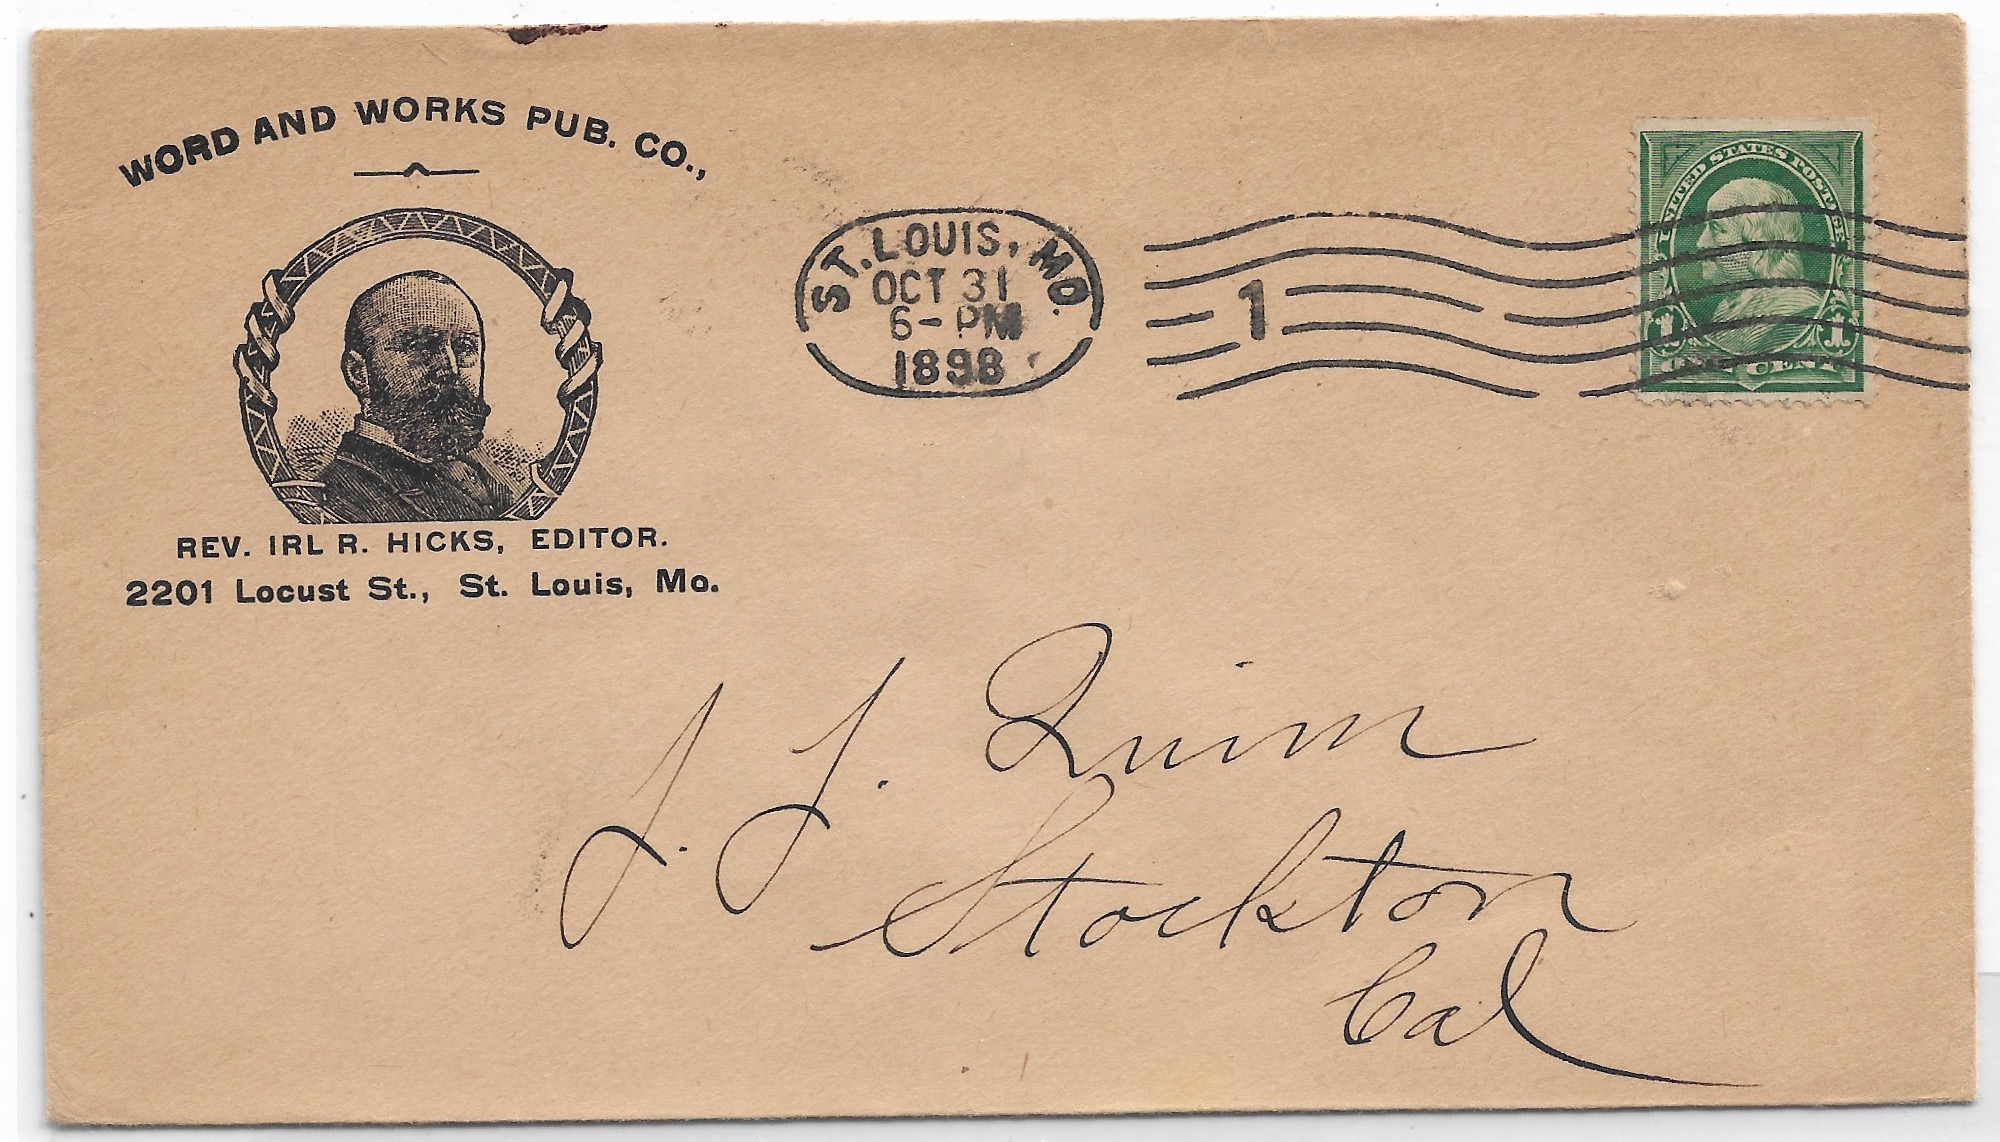 WORD AND WORKS PUB. CO.,
REV. IRL R. HICKS, EDITOR.
2201 Locust St., St. Louis, Mo.
ST. LOUIS, MO.
OCT 31
6-PM
1898
1
UNITED STATES POSTAGE
1 1
ONE CENT
J. J. Quinn
Stockton
Cal